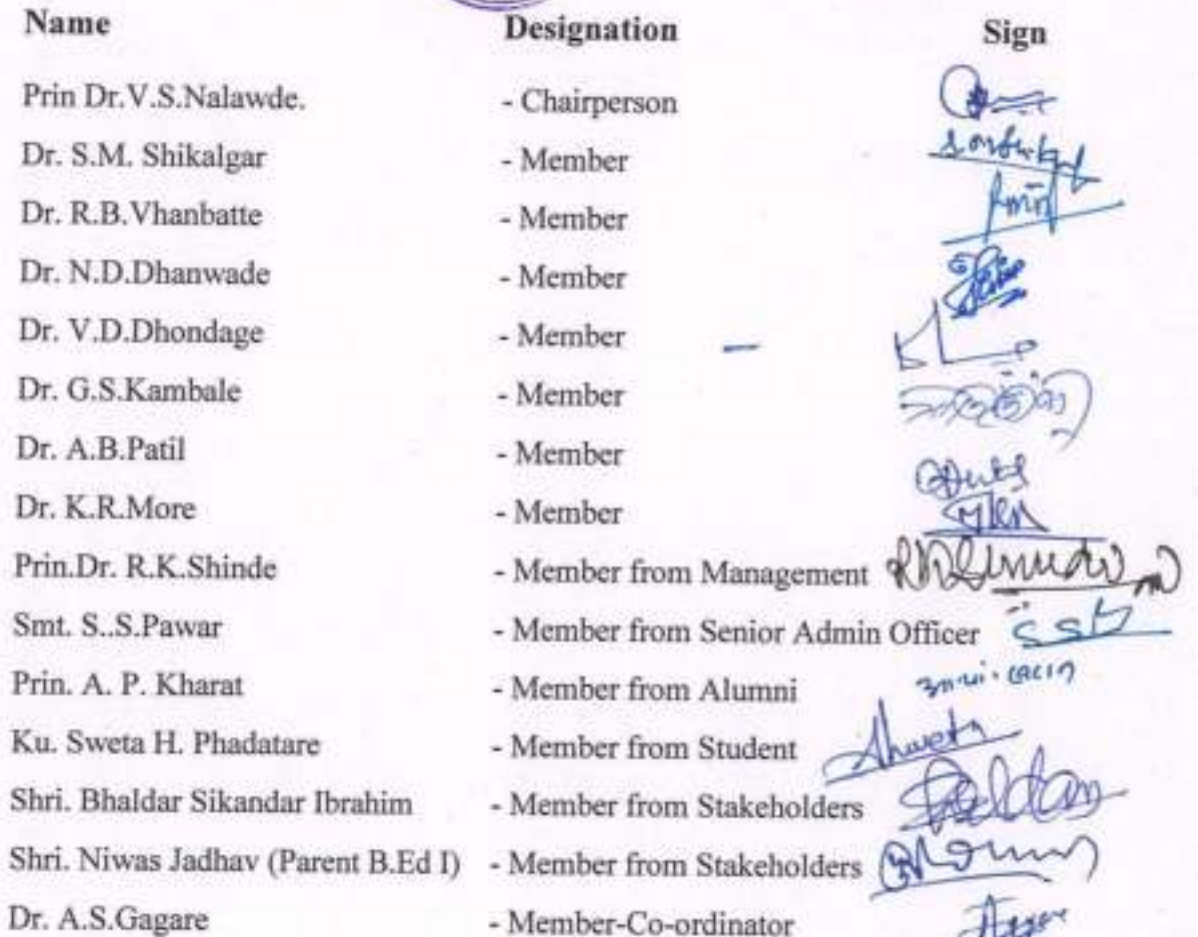 Name Designation Sign
Prin Dr.V.S.Nalawde. - Chairperson
Dr. S.M. Shikalgar - Member
Dr. R.B.Vhanbatte - Member
Dr. N.D.Dhanwade - Member
Dr. V.D.Dhondage - Member
Dr. G.S.Kambale - Member
Dr. A.B.Patil - Member
Dr. K.R.More - Member
Prin.Dr. R.K.Shinde - Member from Management
Smt. S..S.Pawar - Member from Senior Admin Officer
Prin. A. P. Kharat - Member from Alumni
Ku. Sweta H. Phadatare - Member from Student Shweta
Shri. Bhaldar Sikandar Ibrahim - Member from Stakeholders
Shri. Niwas Jadhav (Parent B.Ed I) - Member from Stakeholders
Dr. A.S.Gagare - Member-Co-ordinator